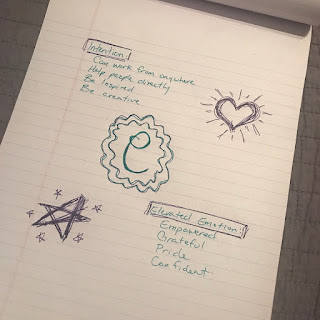 Intention:
Can work from anywhere
Help people directly
Be Inspired
Be creative
e
Elevated Emotion:
Empowered
Grateful
Pride
Confident